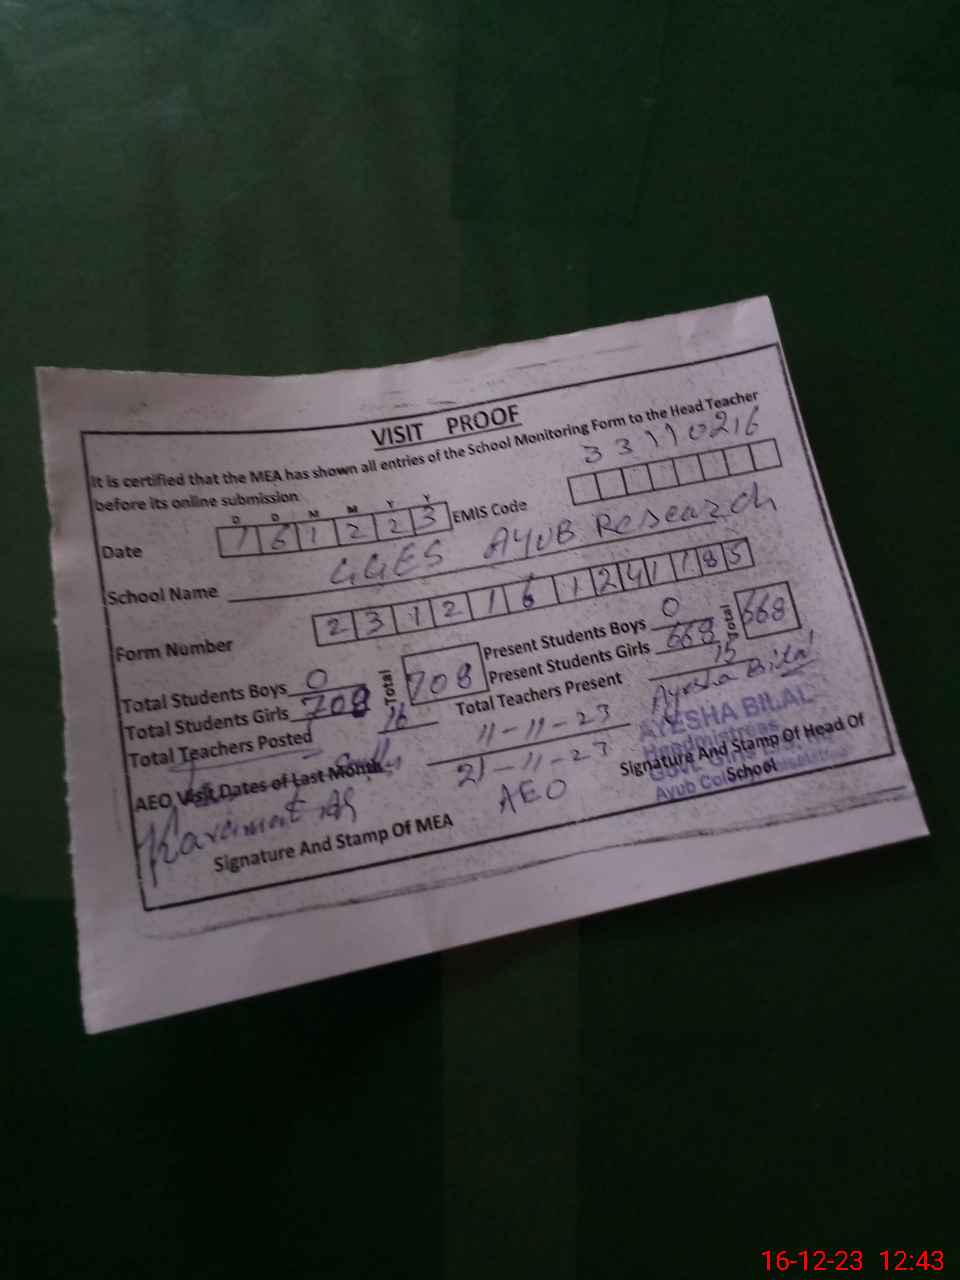 VISIT PROOF
It is certified that the MEA has shown all entries of the School Monitoring Form to the Head Teacher
before its online submission
33110216
D D M M Y Y
Date 161223 EMIS Code
School Name GGES AYUB Research
Form Number 23121612411185
Total Students Boys 0 Total 708 Present Students Boys 0 Total 668
Total Students Girls 708 Present Students Girls 668
Total Teachers Posted 16 Total Teachers Present 15
AEO Visit Dates of Last Month 11-11-23
21-11-23
AEO
Ayesha Bilal
AYESHA BILAL
Headmistress
Govt. Girls
Ayub Col
Signature And Stamp Of MEA
Signature And Stamp Of Head Of
School
16-12-23 12:43